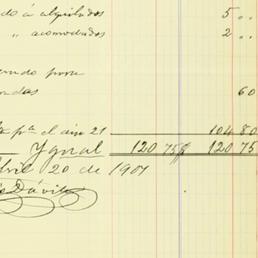 do á alquilados 5 ..
" acomodados 2 ..
para
60
pª el año 21 104 80
Ygual 120 75 120 75
20 de 1907
Dávila